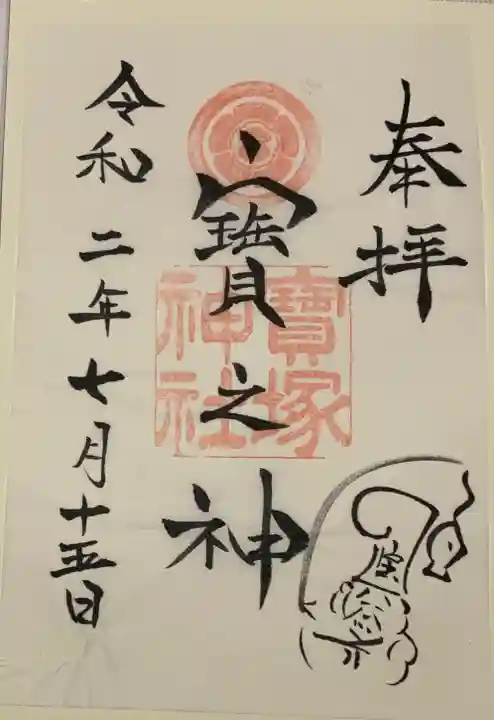 奉拝
寳之神
寶塚
神社
令和二年七月十五日